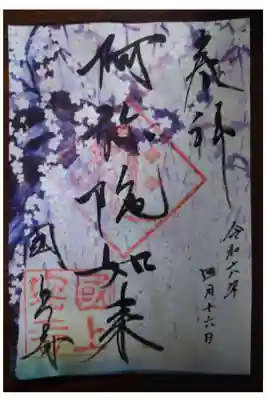 奉拝
令和六年
四月十六日
阿弥陀如来
国上寺
國上